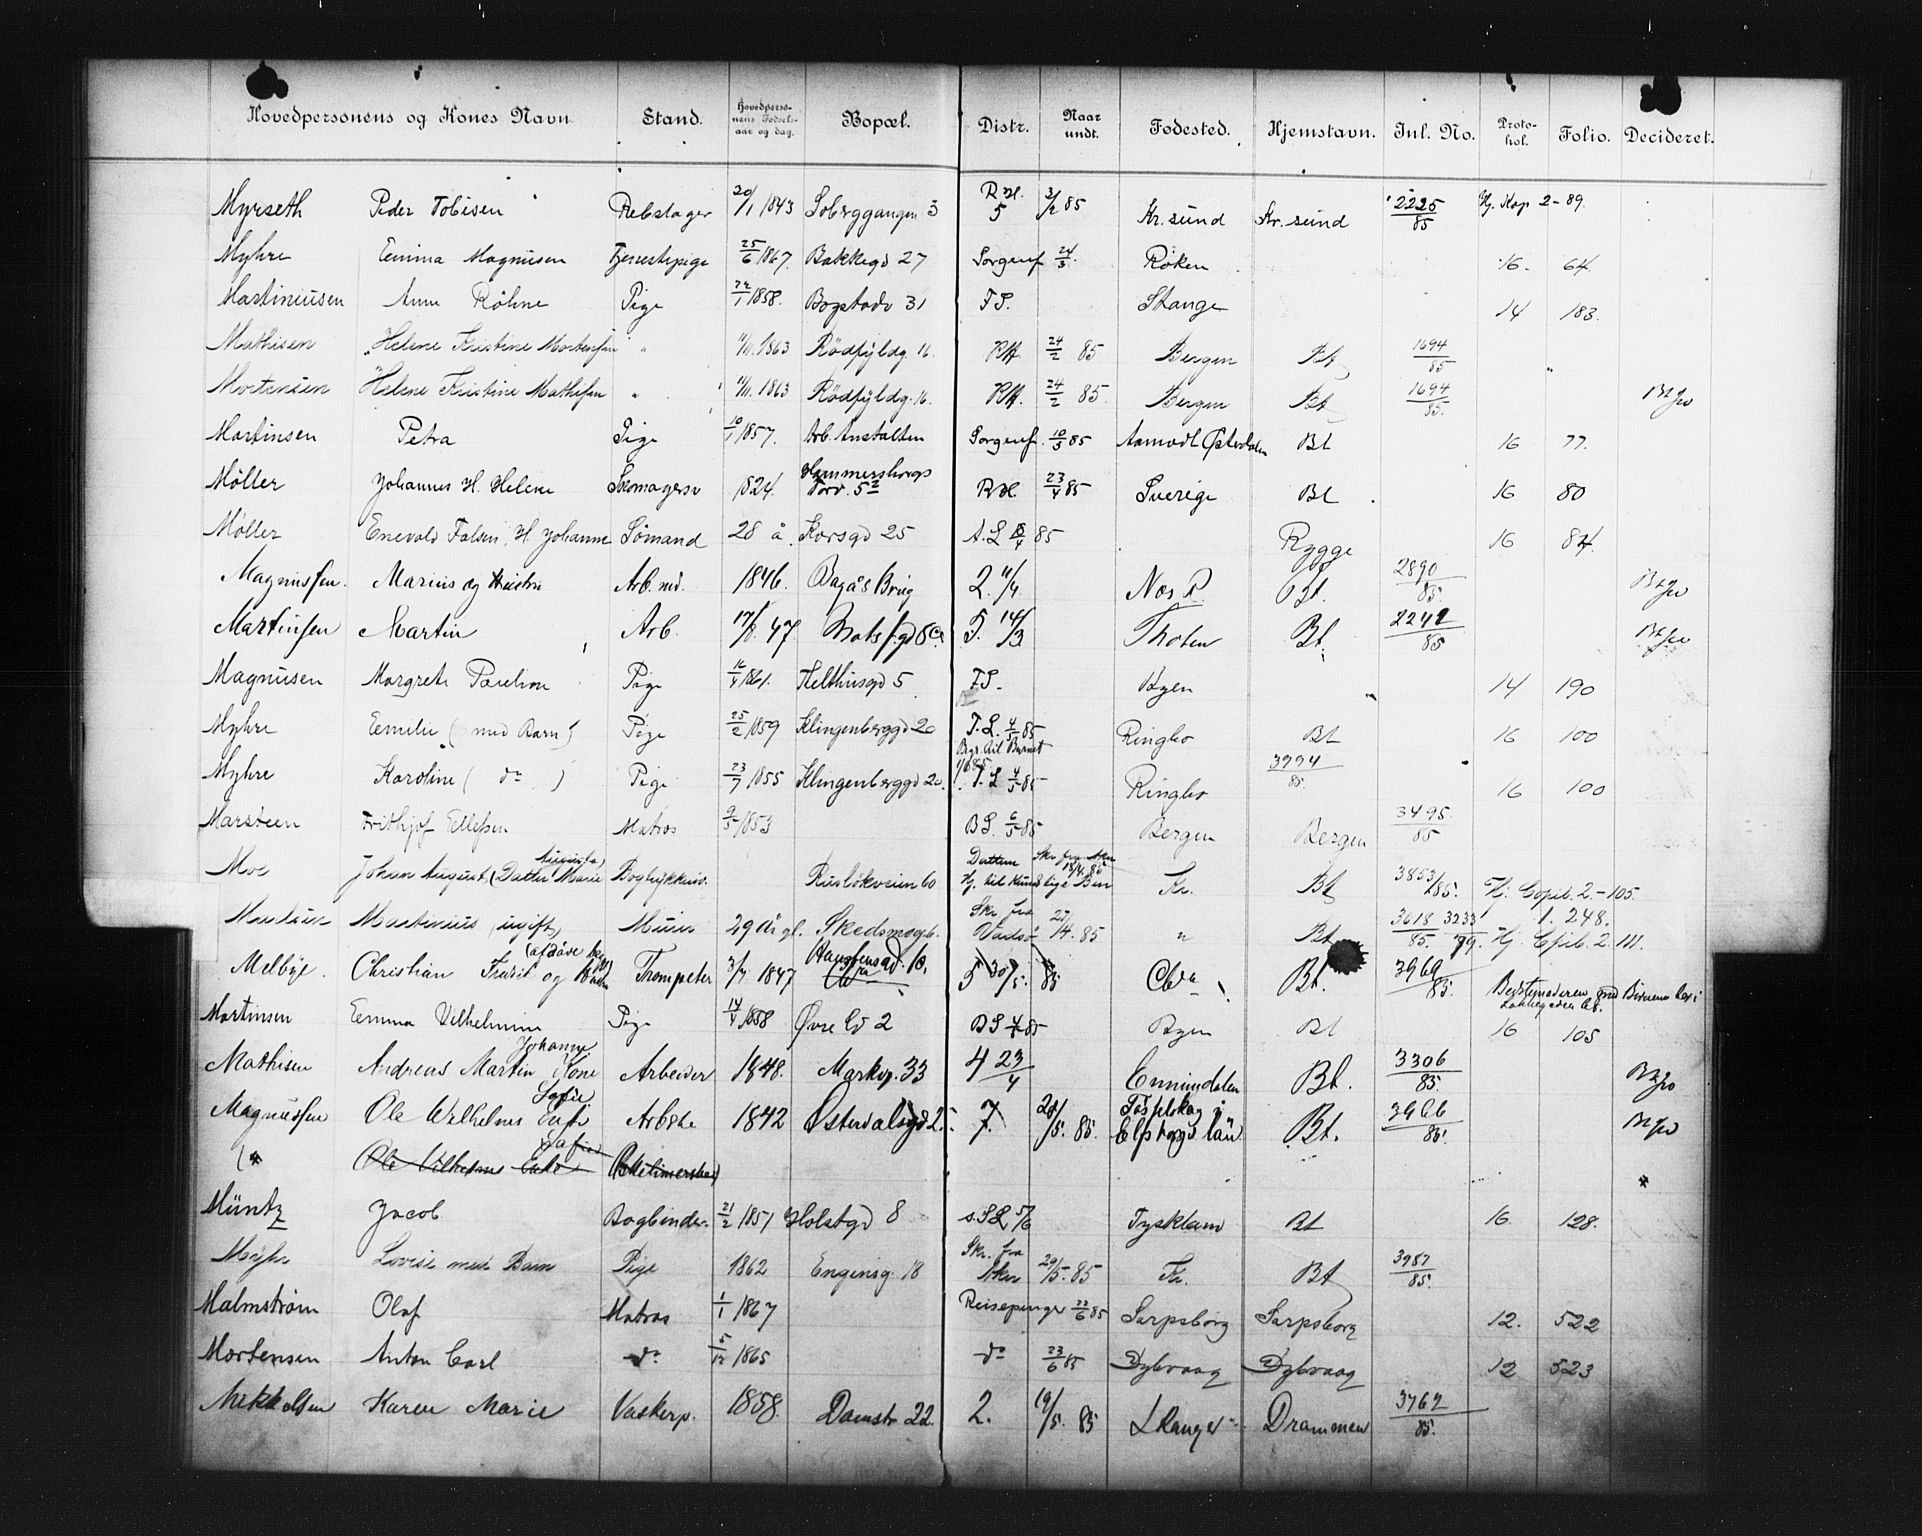 Hovedpersonens og Kones Navn. Stand. Hovedpersonens Fødselsaar og dag. Bopæl. Distr. Naar undt. Fødested. Hjemstavn. Inl. No. Protokol. Folio. Decideret.
Myrseth Peder Tobisen Rebslager 20/1 1843 Soberggangen 3 R.H. 5 3/2 85 Kr.sund Kr.sund 2225/85 Hj. Kop 2-89.
Myhre Emma Magnusen Tjenestepige 25/6 1867. Bakkegd 27 Sorgenf 24/3 Røken 16. 64
Martiniusen Anne Röhne Pige 1858. Bogstadv 31 F.S. Stange 14 183.
Mathisen Helene Kristine Mortensen " 11/11. 1863 Rødfyldg. 16. RH 24/2 85 Bergen Bt 1694/85 "
Mortensen Helene Kristine Mathisen " 11/11. 1863 Rødfyldg. 16. RH. 24/2 85. Bergen Bt 1694/85.
Martinsen Petra Pige 10/1 1857. Arb. Anstalten Sorgenf. 10/3 85 Aamodt Østerdalen Bt 16 77.
Møller Johannes H. Helene Skomagersv 1824. Hammersborgs Torv. 5 R.H. 23/4 85 Sverige Bt. 16 80
Møller Enevold Falsen, H. Johanne Sömand 28 å. Korsgd 25 A.L 85 Rygge 16 84.
Magnussen. Marius og Arb.md. 1846. Bagås Brug 2. 11/4. Nes R. Bt. 2890/85.
Martinsen Martin Arb. 17/8. 47 5. 14/3 Thoten Bt. 2242/85
Magnusen Margrete Pauline Pige 1861. Kelthusgd 5 F.S. Byen 14 190
Myhre Emilie (med Barn) Pige 25/2 1859 Klingenberggd 20 T.L. 4/5 85 Ringbo Bt 16 100
Myhre Karoline (do) Pige 23/7 1855 Klingenberggd 20. T.L 4/5 85 Ringbo 3994/85. 16 100
Marsteen Frithjof Ellefsen Matros 9/5 1853 B.S. 6/5 85 Bergen Bergen 3495/85
Moe Johan August, (Datter Augusta Marie) Rusløkveien 60 Kr. Bt 3853/85. Hj. Copib. 2-105.
Martinius, ugift, Murer 29 År gl. Skedsmogd. Skr fra Vadsø 27/4. 85 " Bt 3618/85. 3233/79. 1. 248. Hj. Cpib. 2. 111.
Melbye. Christian Trompeter 3/7. 1847 10. 5 30/5. 85 Chra Bt. 3969/85.
Martinsen Emma Vilhelmine Pige 14/4 1858 Øvre Gd 2 B S 85 Byen Bt 16 105
Mathisen Andreas Martin (Kone Johanne Arbeider 1848. Markv. 33 4 23/4 Enningdalen Bt. 3306/85.
Magnussen Ole Wilhelms Enke Sofie Arbske 1842 Østerdalsgd 2. 7. 20/5. 85. Tösslskog i Elfsborgs län Bt. 3966/85.
Ole Vilhelms Enke
Müntz Jacob Bogbinder. 21/2 1851 Holstgd 8 s.S.L 5/6 Tyskland Bt 16. 128.
Myhr Lovise med Barn Pige 1862 Engensg. 18 Skr. fra Aker 29/5. 85 Kr. Bt 3987/85.
Malmstrøm Olaf Matros 1/1 1867 Reisepenge 22/6 85 Sarpsborg Sarpsborg 12. 522
Mortensen Anton Carl do 5/12 1865 do 23/6 85 Dybvaag Dybvaag 12 523
Mikkelsen Karen Marie Vaskerp. 1858. Damstr. 22. 2. 19/5. 85 Drammen 3762/85.